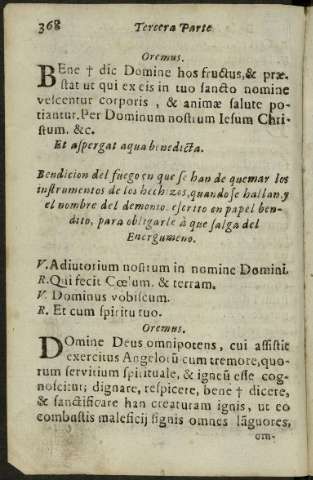 368 Tercera Parte
Oremus.
BEne † dic Domine hos fructus, & præ-
stat ut qui ex eis in tuo sancto nomine
vescentur corporis, & animæ salute po-
tiantur. Per Dominum nostrum Iesum Chri-
stum. &c.
Et aspergat aqua benedicta.
Bendicion del fuego en que se han de quemar los
instrumentos de los hechizos, quando se hallan, y
el nombre del demonio, escrito en papel ben-
dito, para obligarle à que salga del
Energumeno.
V. Adiutorium nostrum in nomine Domini.
R. Qui fecit Cœlum. & terram.
V. Dominus vobiscum.
R. Et cum spiritu tuo.
Oremus.
DOmine Deus omnipotens, cui assistit
exercitus Angelorū cum tremore, quo-
rum servitium spirituale, & igneū esse cog-
noscitur; dignare, respicere, bene † dicere,
& sanctificare han creaturam ignis, ut eo
combustis maleficij signis omnes lāguores,
om-